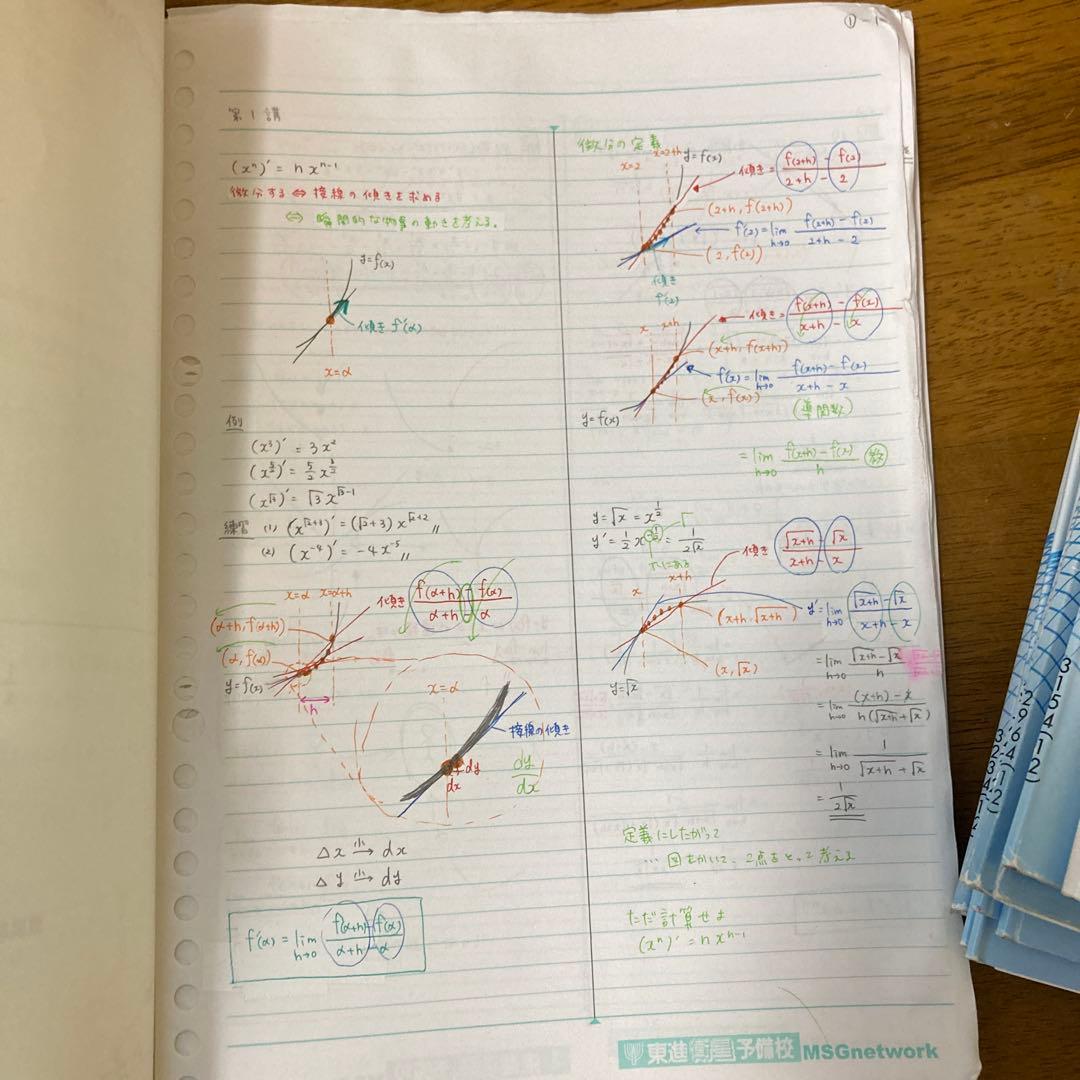 ①-1
第1講
(xⁿ)' = n xⁿ⁻¹
微分する ⇔ 接線の傾きを求める
⇔ 瞬間的な物事の動きを考える。
y=f(x)
傾き f'(α)
x=α
例
(x³)' = 3x²
(x^{5/2})' = 5/2 x^{3/2}
(x^{√3})' = √3 x^{√3-1}
練習 (1) (x^{√2+3})' = (√2+3) x^{√2+2} 〃
(2) (x⁻⁴)' = -4x⁻⁵ 〃
x=α x=α+h 傾き (f(α+h) - f(α))/(α+h - α)
(α+h, f(α+h))
(α, f(α))
y=f(x)
h
x=α
接線の傾き
dy
dx
dy/dx
Δx 小→ dx
Δy 小→ dy
f'(α) = lim_{h→0} (f(α+h) - f(α))/(α+h - α)
微分の定義
x=2 x=2+h y=f(x)
傾き = (f(2+h) - f(2))/(2+h - 2)
(2+h, f(2+h))
f'(2) = lim_{h→0} (f(2+h) - f(2))/(2+h - 2)
(2, f(2))
傾き
f'(2)
x x+h 傾き = (f(x+h) - f(x))/(x+h - x)
(x+h, f(x+h))
f'(x) = lim_{h→0} (f(x+h) - f(x))/(x+h - x)
(x, f(x))
y=f(x)
(導関数)
= lim_{h→0} (f(x+h) - f(x))/h 教
y=√x = x^{1/2}
y' = 1/2 x^{-1/2} = 1/(2√x)
√
下にある
傾き (√(x+h) - √x)/(x+h - x)
x x+h
(x+h, √(x+h))
(x, √x)
y=√x
y' = lim_{h→0} (√(x+h) - √x)/(x+h - x)
= lim_{h→0} (√(x+h) - √x)/h
= lim_{h→0} ((x+h) - x)/(h(√(x+h) + √x))
= lim_{h→0} 1/(√(x+h) + √x)
= 1/(2√x)
定義にしたがって
… 図をかいて、2点をとって考える
ただ計算せよ
(xⁿ)' = n xⁿ⁻¹
東進衛星予備校 MSGnetwork